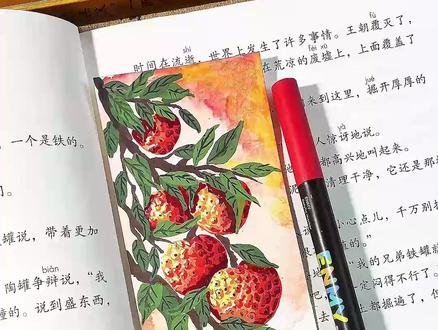 ，一个是铁的。
罐说，带着更加
biàn
陶罐争辩说，“我
的。说到盛东西，
shì
fù
时间在流逝，世界上发生了许多事情。王朝覆灭了，
fèi xū
在荒凉的废墟上，上面覆盖了
jué
来到这里，掘开厚厚的
yà
人惊讶地说。
都高兴地叫起来。
清理干净，它还是那
小心点儿，千万别
的。”
“我的兄弟铁罐就
一定闷得不行了。
都掘遍了，但
ENMY